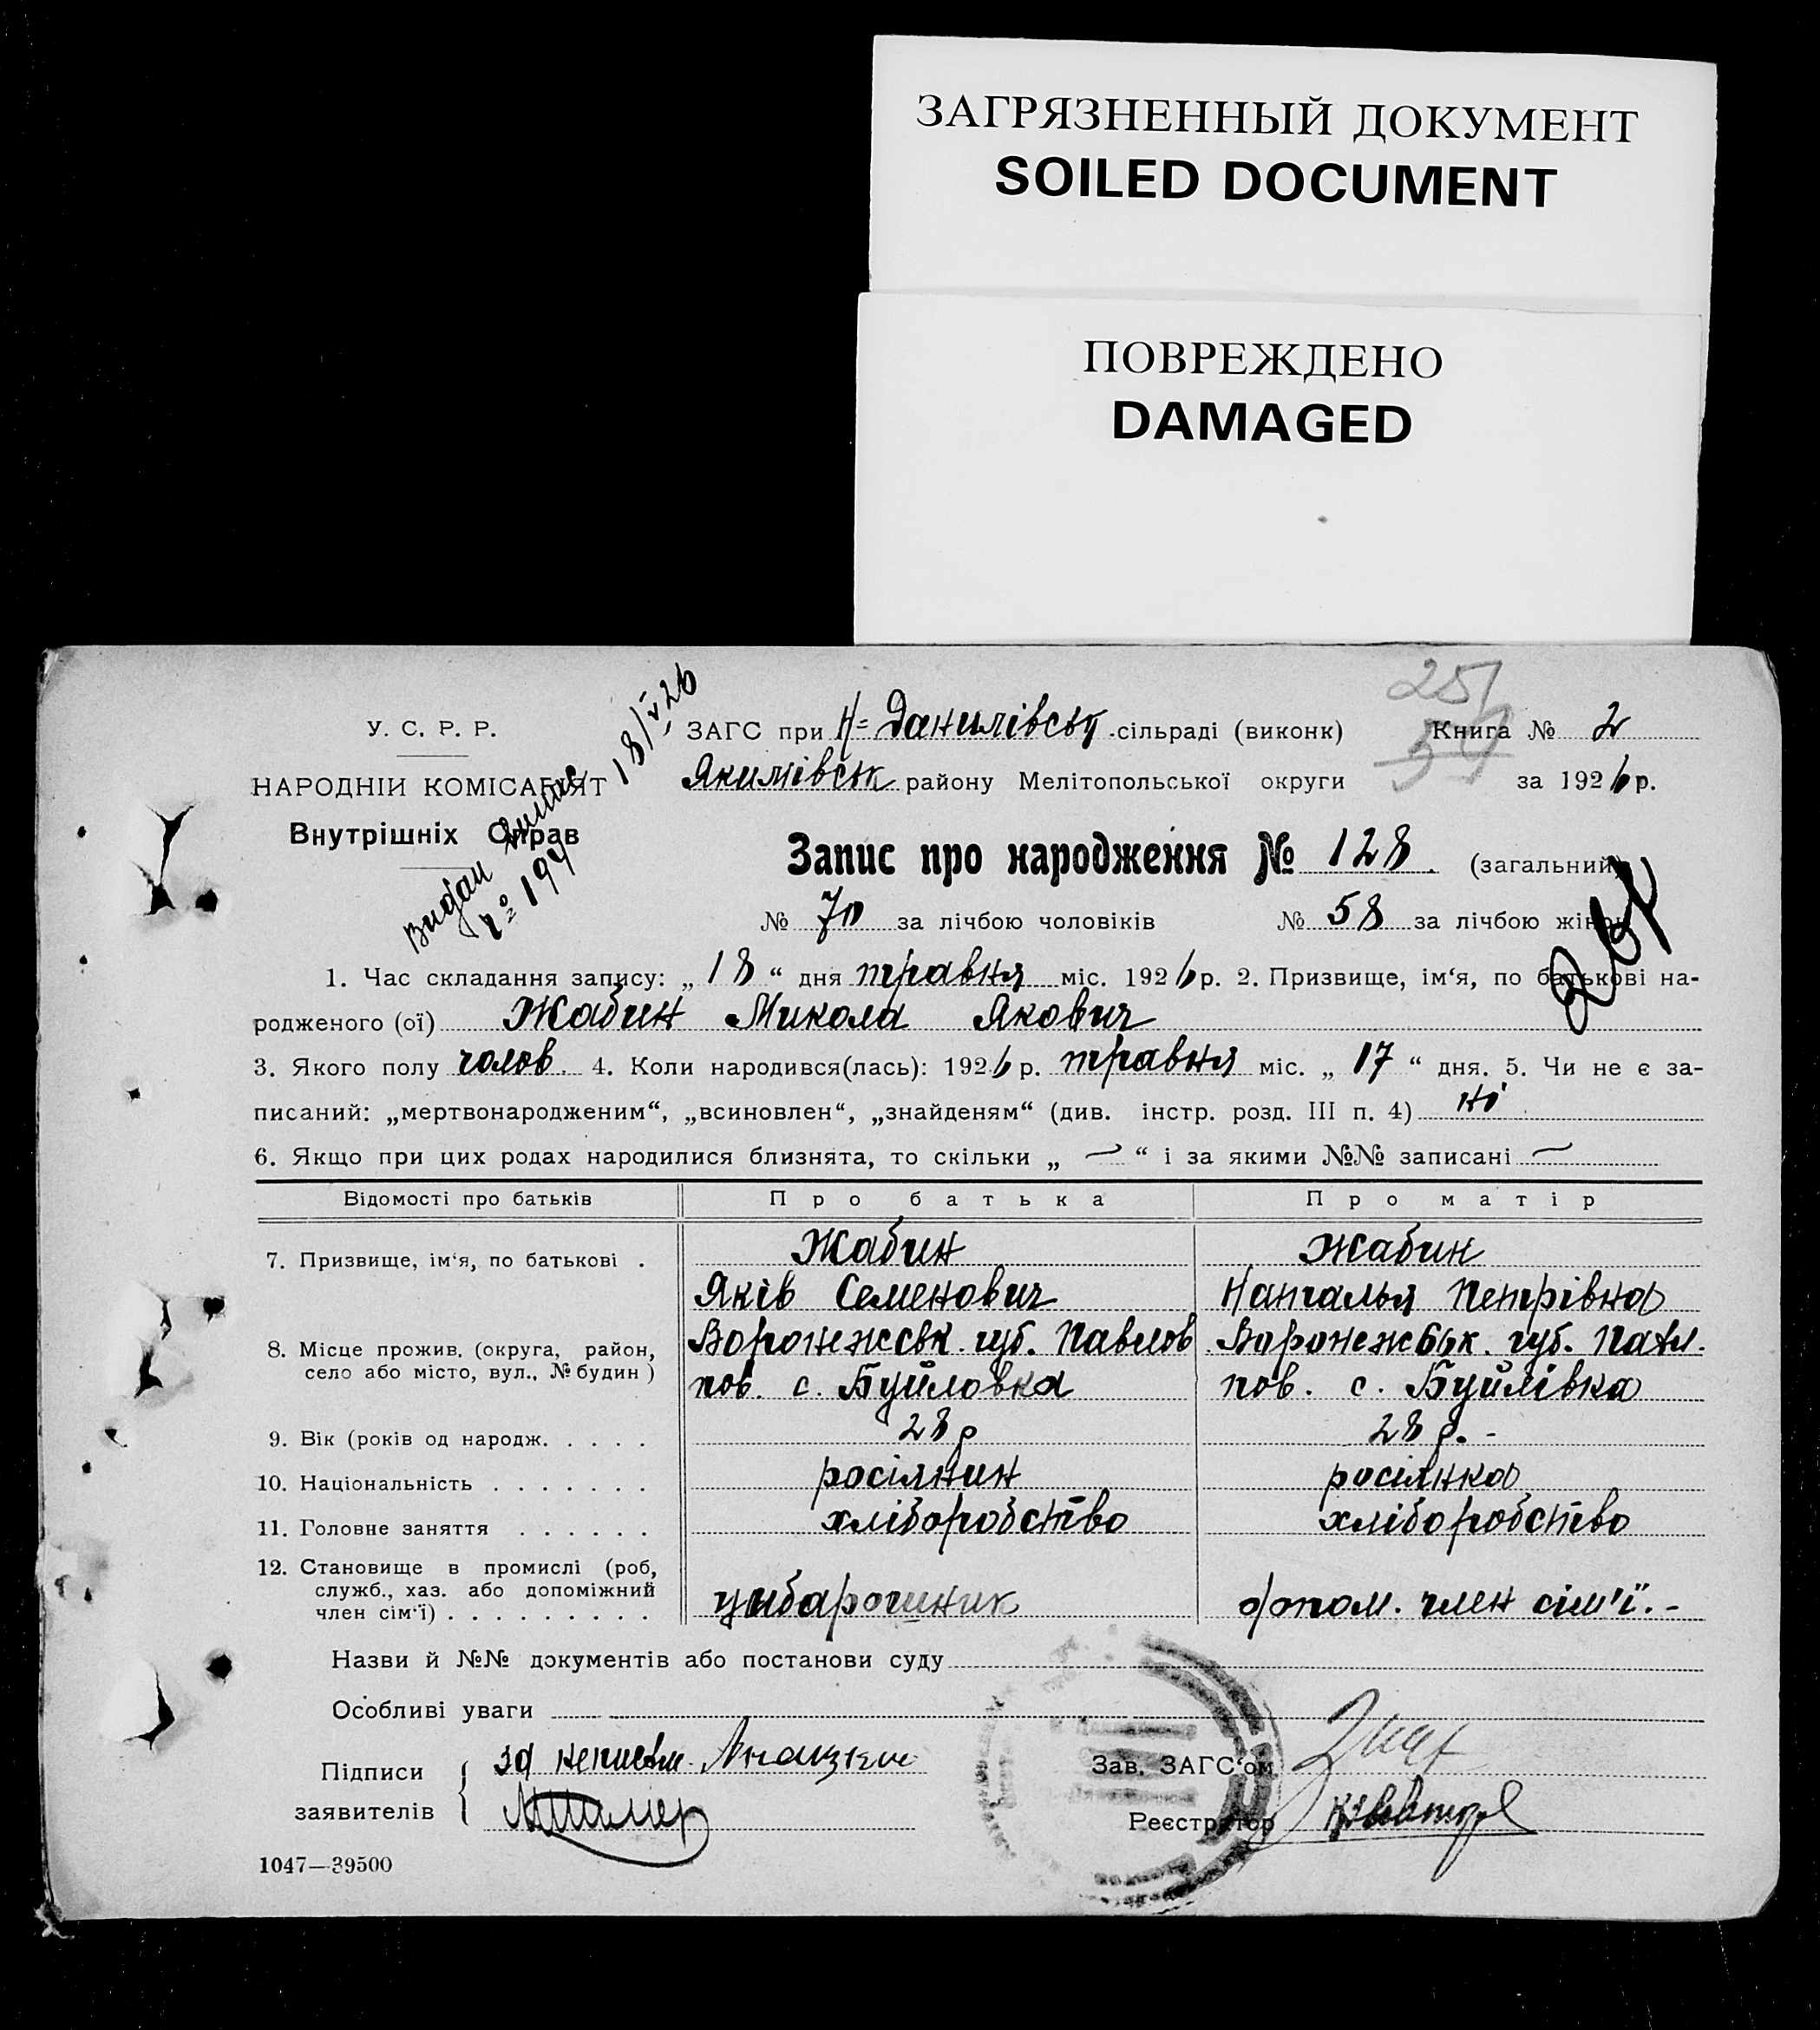 ЗАГРЯЗНЕННЫЙ ДОКУМЕНТ
SOILED DOCUMENT
ПОВРЕЖДЕНО
DAMAGED
25
У. С. Р. Р.
НАРОДНІЙ КОМІСАРІЯТ
Внутрішніх Справ
Видан випис 18/V 26
№ 194
ЗАГС при Н=Данилівськ. сільраді (виконк) Книга № 2
Якимівськ району Мелітопольської округи за 1926 р.
Запис про народження № 128. (загальний)
№ 70 за лічбою чоловіків № 58 за лічбою жінок
1. Час складання запису: „18“ дня травня міс. 1926 р. 2. Призвище, ім‘я, по батькові на-
родженого (ої) Жабин Микола Якович
3. Якого полу чолов. 4. Коли народився(лась): 1926 р. травня міс. „17“ дня. 5. Чи не є за-
писаний: „мертвонародженим“, „всиновлен“, „знайденям“ (див. інстр. розд. III п. 4) ні
6. Якщо при цих родах народилися близнята, то скільки „ — “ і за якими №№ записані —
Відомості про батьків Про батька Про матір
7. Призвище, ім‘я, по батькові . Жабин Жабин
Яків Семенович Наталья Петрівна
8. Місце прожив. (округа, район, Воронежськ. губ. Павлов Воронежськ. губ. Павл.
село або місто, вул., № будин) пов. с. Буйловка пов. с. Буйлівка
9. Вік (років од народж. . . . . 28 р 28 р. -
10. Національність . . . . . . . росіянин росіянка
11. Головне заняття . . . . . . хліборобство хліборобство
12. Становище в промислі (роб,
служб., хаз. або допоміжний
член сім‘ї) . . . . . . . . . допом. член сім'ї. -
Назви й №№ документів або постанови суду
Особливі уваги
Підписи за неписьм.
заявителів
Зав. ЗАГС‘ом
Реєстратор
1047—39500